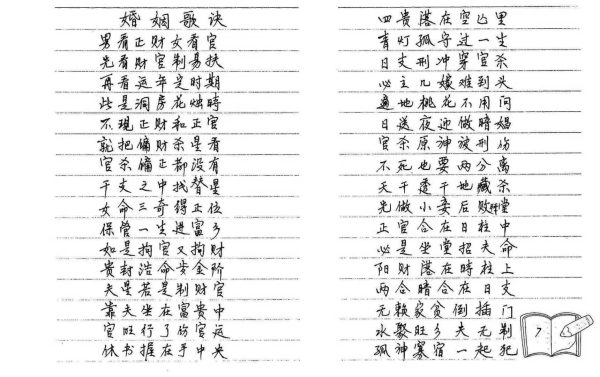 婚姻歌诀
男看正财女看官
先看财官制易扶
再看运年定时期
此是洞房花烛時
不現正财和正官
就把偏财杀星看
官杀偏正都没有
干支之中找替星
女命三奇得正位
保管一生进富乡
如是拘官又拘财
贵封浩命步金阶
夫星若是制财官
靠夫坐在富贵中
官旺行了伤官运
休书握在手中央
四贵落在空亡里
青灯孤守过一生
日支刑冲穿官杀
必主几嫁难到头
遍地桃花不用问
日送夜迎做暗娼
官杀原神被刑伤
不死也要两分离
天干透干地藏杀
先做小妾后败堂
正官合在日柱中
必是坐堂招夫命
阳财落在時柱上
两合暗合在日支
元赖家贫倒插门
水聚旺乡夫无制
孤神寡宿一起犯
7